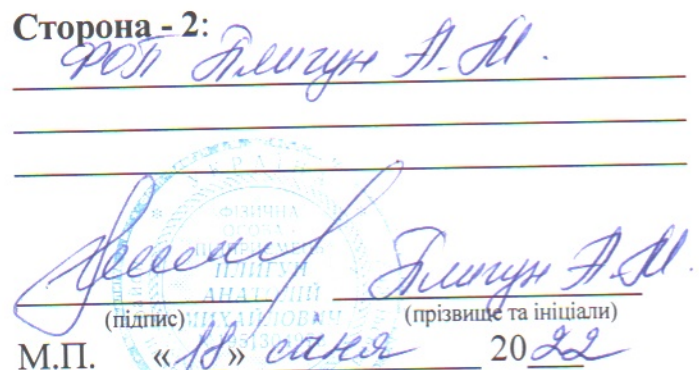 Сторона - 2:
ФОП Плигун А. М.
УКРАЇНА
ФІЗИЧНА
ОСОБА -
ПІДПРИЄМЕЦЬ
ПЛИГУН
АНАТОЛІЙ
МИХАЙЛОВИЧ
Плигун А. М.
(підпис) (прізвище та ініціали)
М.П. «18» січня 2022